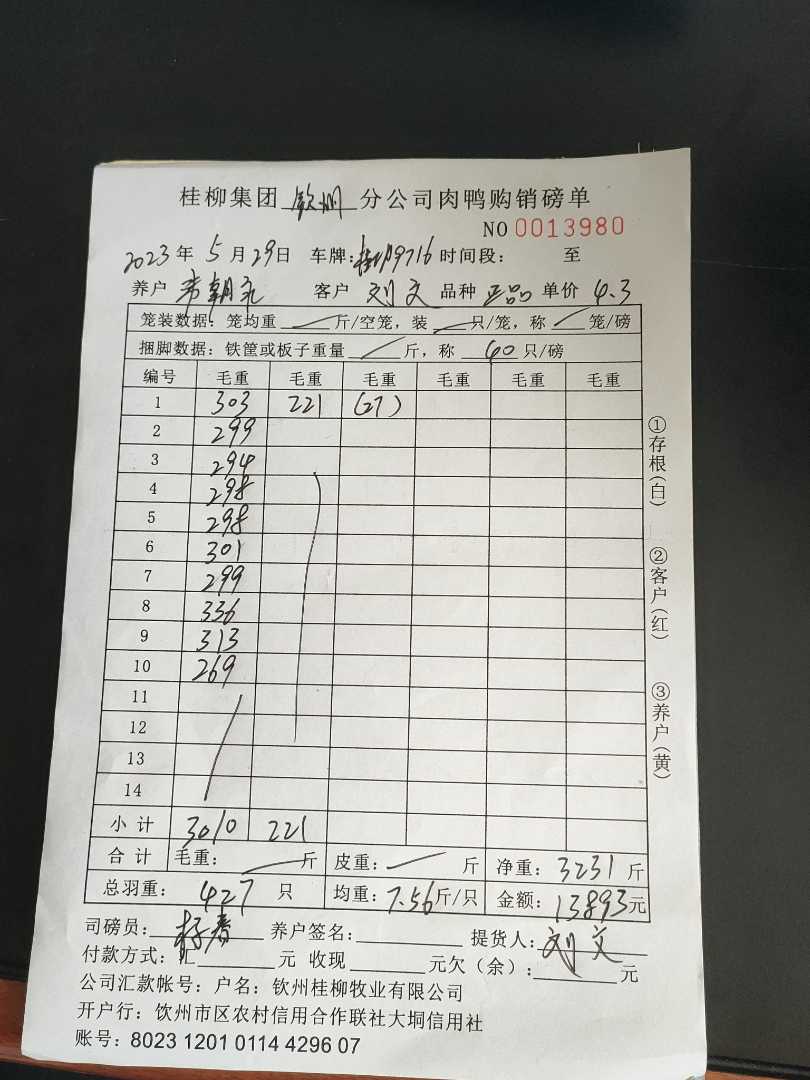 桂柳集团 钦州 分公司肉鸭购销磅单
NO 0013980
2023 年 5 月 29 日 车牌: 9716 时间段: 至
养户 韦朝 客户 刘文 品种 正品 单价 4.3
笼装数据: 笼均重 斤/空笼, 装 只/笼, 称 笼/磅
捆脚数据: 铁筐或板子重量 斤, 称 40 只/磅
编号 毛重 毛重 毛重 毛重 毛重 毛重
1 303 221 (27)
2 299
3 294
4 298
5 298
6 301
7 299
8 336
9 313
10 269
11
12
13
14
小计 3010 221
合计 毛重: 斤 皮重: 斤 净重: 3231 斤
总羽重: 427 只 均重: 7.56 斤/只 金额: 13893 元
司磅员: 杨春 养户签名: 提货人: 刘文
付款方式: 汇 元 收现 元欠(余): 元
公司汇款帐号: 户名: 钦州桂柳牧业有限公司
开户行: 钦州市区农村信用合作联社大垌信用社
账号: 8023 1201 0114 4296 07
①存根(白)
②客户(红)
③养户(黄)